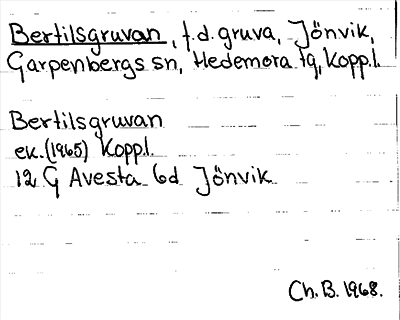 Bertilsgruvan, f.d. gruva, Jönvik,
Garpenbergs sn, Hedemora tg, Kopp.l.
Bertilsgruvan
ek. (1965) Kopp.l.
12 G Avesta 6d Jönvik
Ch. B. 1968.